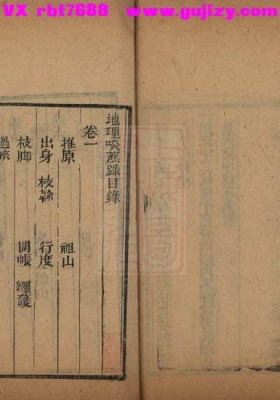 VX rbt7688 www.gujizy.com
地理啖蔗錄目錄
卷一
推原 祖山
出身 枝幹 行度
枝脚 開帳 纏護
過峽
www.gujizy.com